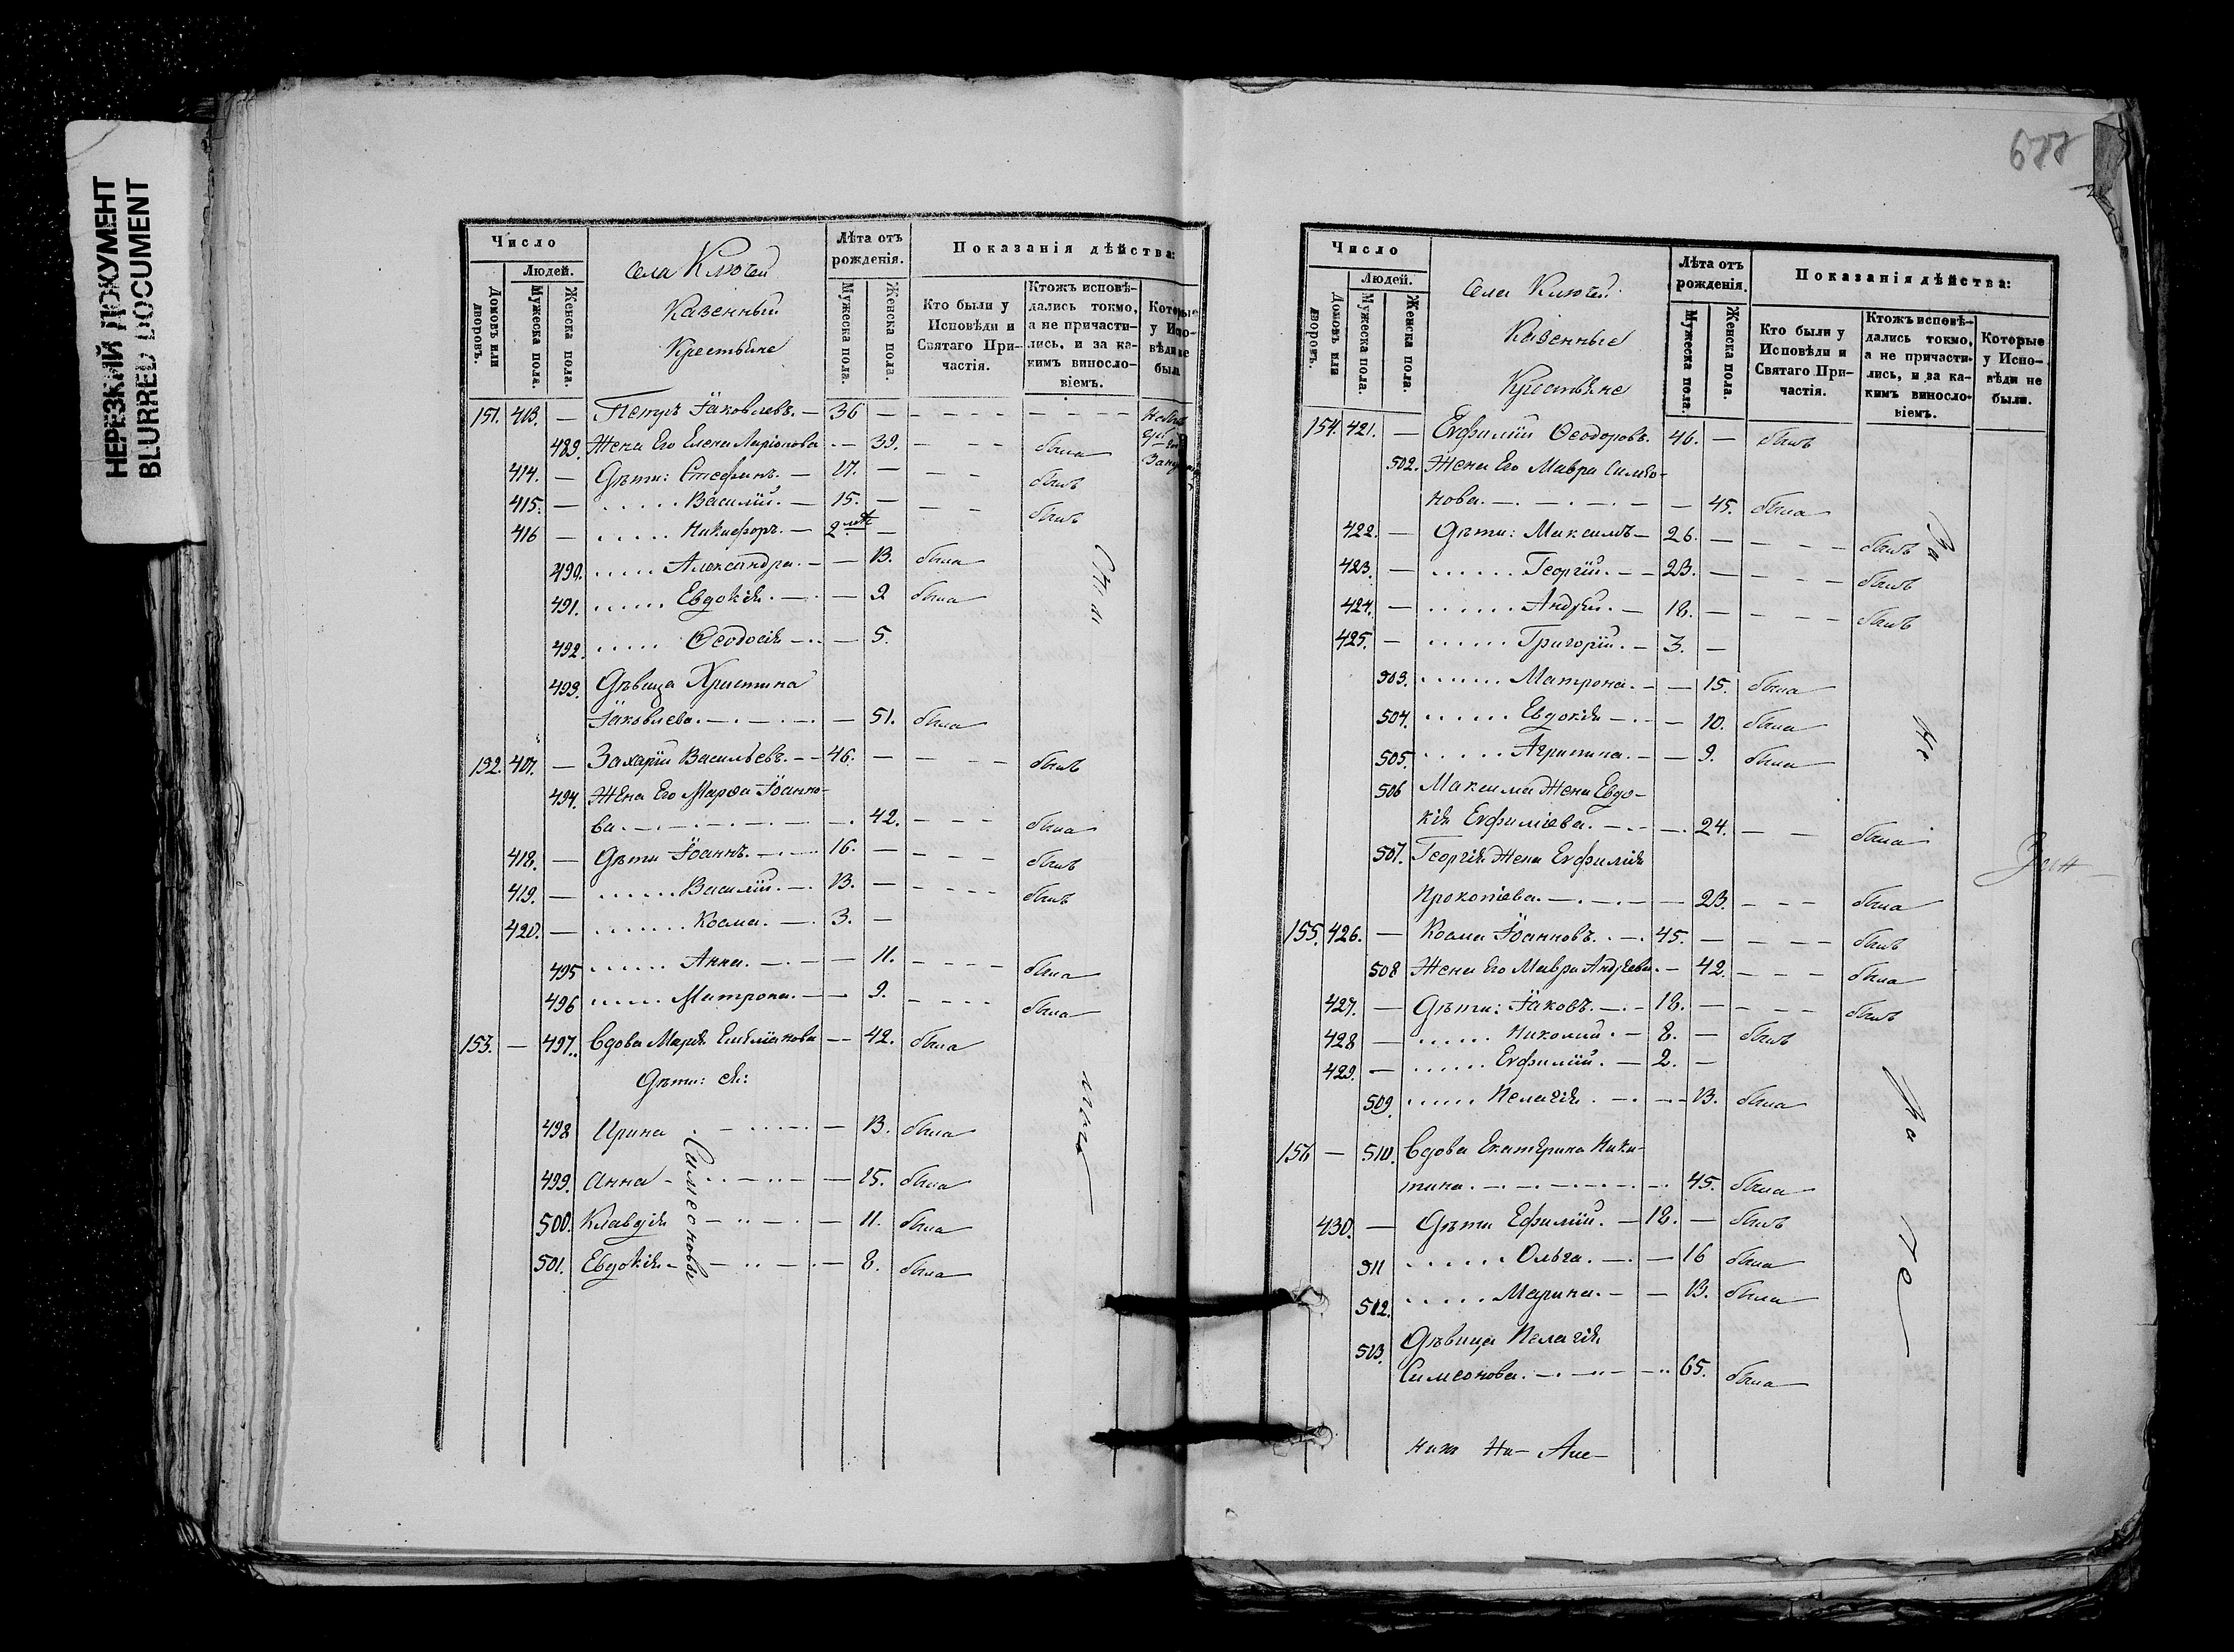 НЕРЕЗКИЙ ДОКУМЕНТ
BLURRED DOCUMENT
Число
Людей.
Домовъ или дворовъ.
Мужеска пола.
Женска пола.
села Ключей
Казенныи
Крестьяне
Лѣта отъ рожденія.
Мужеска пола.
Женска пола.
Показанія дѣйства:
Кто были у Исповѣди и Святаго Причастія.
Ктожъ исповѣдались токмо, а не причастились, и за какимъ винословіемъ.
Которые у Исповѣди не были
151. 413. — Петръ Іаковлевъ. — 36 —
489. Жена Его Елена Ларіонова — 39. была
414. — Дѣти: Стефанъ. — 17. — былъ
415. — Василій. — 15. — былъ
416 — Никифоръ. — 2 —
490. Александра. — — 13. была
491. Евдокія. — — 9 была
492. Ѳеодосія — — 5.
493. Дѣвица Христина
Іаковлева. — — 51. была
152. 417. — Захарій Васильевъ. — 46. — былъ
494. Жена Его Марѳа Іоанно-
ва. — 42. была
418. — Дѣти Іоаннъ. — 16. — былъ
419. — Василій. — 13. — былъ
420. — Косма. — 3. —
495 Анна. — — 11. была
496 Матрона. — — 9. была
153. — 497. Вдова Марія Емѣліанова — 42. была
Дѣти: ея:
498 Ирина — 13. была
499. Анна — 15. была
500. Клавдія — 11. была
501. Евдокія — 8. была
Симеоновы
688
Число
Людей.
Домовъ или дворовъ.
Мужеска пола.
Женска пола.
села Ключей
Казенные
Крестьяне
Лѣта отъ рожденія.
Мужеска пола.
Женска пола.
Показанія дѣйства:
Кто были у Исповѣди и Святаго Причастія.
Ктожъ исповѣдались токмо, а не причастились, и за какимъ винословіемъ.
Которые у Исповѣди не были.
154. 421. — Евфимій Ѳеодоровъ. 46. — былъ
502. Жена Его Мавра Симео-
нова. — 45. была
422. — Дѣти: Максимъ — 26. — былъ
423. — Георгій. — 23. — былъ
424. — Андрей. — 18. — былъ
425. — Григорій. — 3. —
503. Матрона. — — 15. была
504. Евдокія — — 10. была
505. Агрипина. — — 9. была
506 Максима Жена Евдо-
кія Евфиміева. — 24. была
507. Георгія Жена Евфимія
Прокопіева. — 23. была
155. 426. — Косма Іоанновъ. — 45. — былъ
508 Жена Его Мавра Андреева. — 42. была
427. — Дѣти: Іаковъ. — 18. — былъ
428 — Николай. — 8. — былъ
429. — Евфимій. — 2. —
509. Пелагія. — — 13. была
156 — 510. Вдова Екатерина Ники-
тина. — 45. была
430. — Дѣти Ефимій. — 18. — былъ
511 Ольга. — — 16 была
512. Марина. — — 13. была
513. Дѣвица Пелагія
Симеонова. — 65. была